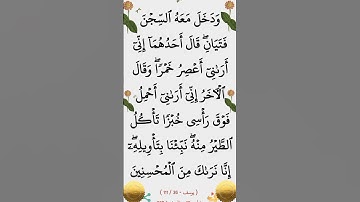 وَدَخَلَ مَعَهُ ٱلسِّجۡنَ
فَتَيَانِۖ قَالَ أَحَدُهُمَآ إِنِّيٓ
أَرَىٰنِيٓ أَعۡصِرُ خَمۡرٗاۖ وَقَالَ
ٱلۡأٓخَرُ إِنِّيٓ أَرَىٰنِيٓ أَحۡمِلُ
فَوۡقَ رَأۡسِي خُبۡزٗا تَأۡكُلُ
ٱلطَّيۡرُ مِنۡهُۖ نَبِّئۡنَا بِتَأۡوِيلِهِۦٓۖ
إِنَّا نَرَىٰكَ مِنَ ٱلۡمُحۡسِنِينَ